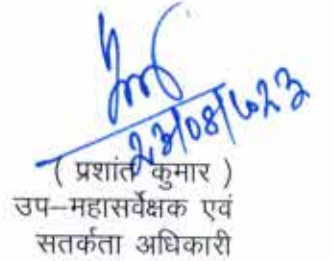 23/08/2023
( प्रशांत कुमार )
उप–महासर्वेक्षक एवं
सतर्कता अधिकारी